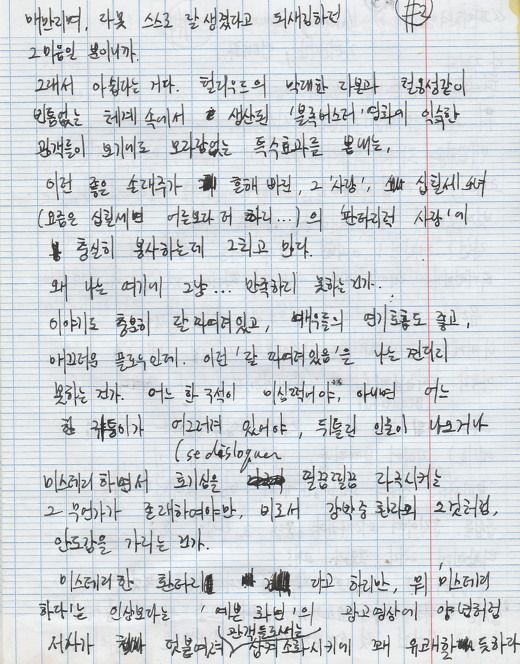 매만지며, 다못 스스로 잘 생겼다고 되새김하던
그 마음일 뿐이니까.
그래서 아쉽다는 거다. 헐리우드의 막대한 자본과 철옹성같이
빈틈없는 체계 속에서 생산된 '블록버스터' 영화에 익숙한
관객들이 보기에도 모자람없는 특수효과를 뽐내는,
이런 좋은 소재주가 흔해 빠진, 그 '사랑', 십칠세 소녀
(요즘은 십칠세면 어른보다 더 하니...)의 '판타지럭 사랑'에
충실히 봉사하는데 그치고 만다.
왜 나는 여기에 그냥... 만족하지 못하는 건가..
이야기도 충분히 잘 짜여져있고, 배우들의 연기호흡도 좋고,
매끄러운 플로우인데. 이런 '잘 짜여져있음'은 나는 견디지
못하는 건가. 어느 한 구석이 미심쩍어야, 아니면 어느
한 귀퉁이가 어그러져 있어야, 뒤틀린 인물이 나오거나
(se disloquer
미스테리하면서 호기심을 찔끔찔끔 자극시키는
그 무언가가 존재하여야만, 비로서 강박증 환자의 그것처럼,
안도감을 가지는 건가.
미스테리한 환타지 라고 하지만, 뭐 '미스테리
하다'는 인상보다는 '예쁜 화면'의 광고영상에 양념처럼
서사가 덧붙여져 관객들로서는 소화시키기에 꽤 유쾌한 듯하다